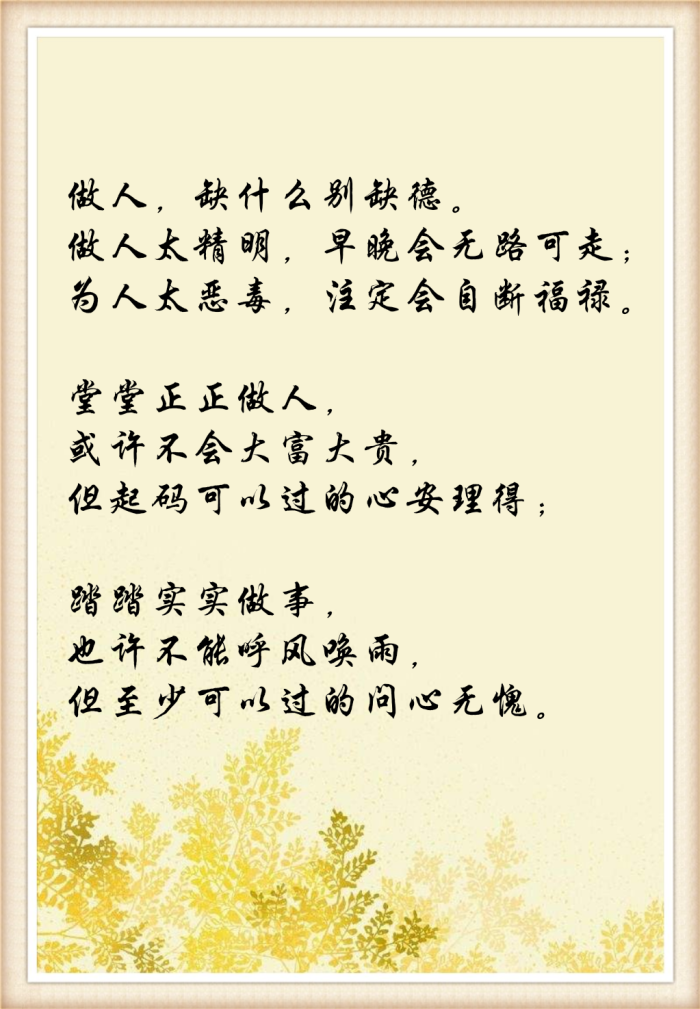 做人，缺什么别缺德。
做人太精明，早晚会无路可走；
为人太恶毒，注定会自断福禄。
堂堂正正做人，
或许不会大富大贵，
但起码可以过的心安理得；
踏踏实实做事，
也许不能呼风唤雨，
但至少可以过的问心无愧。